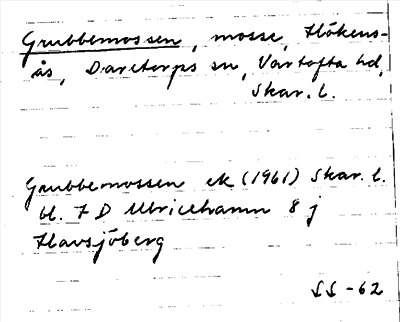 Grubbemossen, mosse, Hökens-
ås, Daretorps sn, Vartofta hd,
Skar. l.
Grubbemossen ek (1961) Skar. l.
bl. 7 D Ulricehamn 8 j
Havsjöberg
SS-62